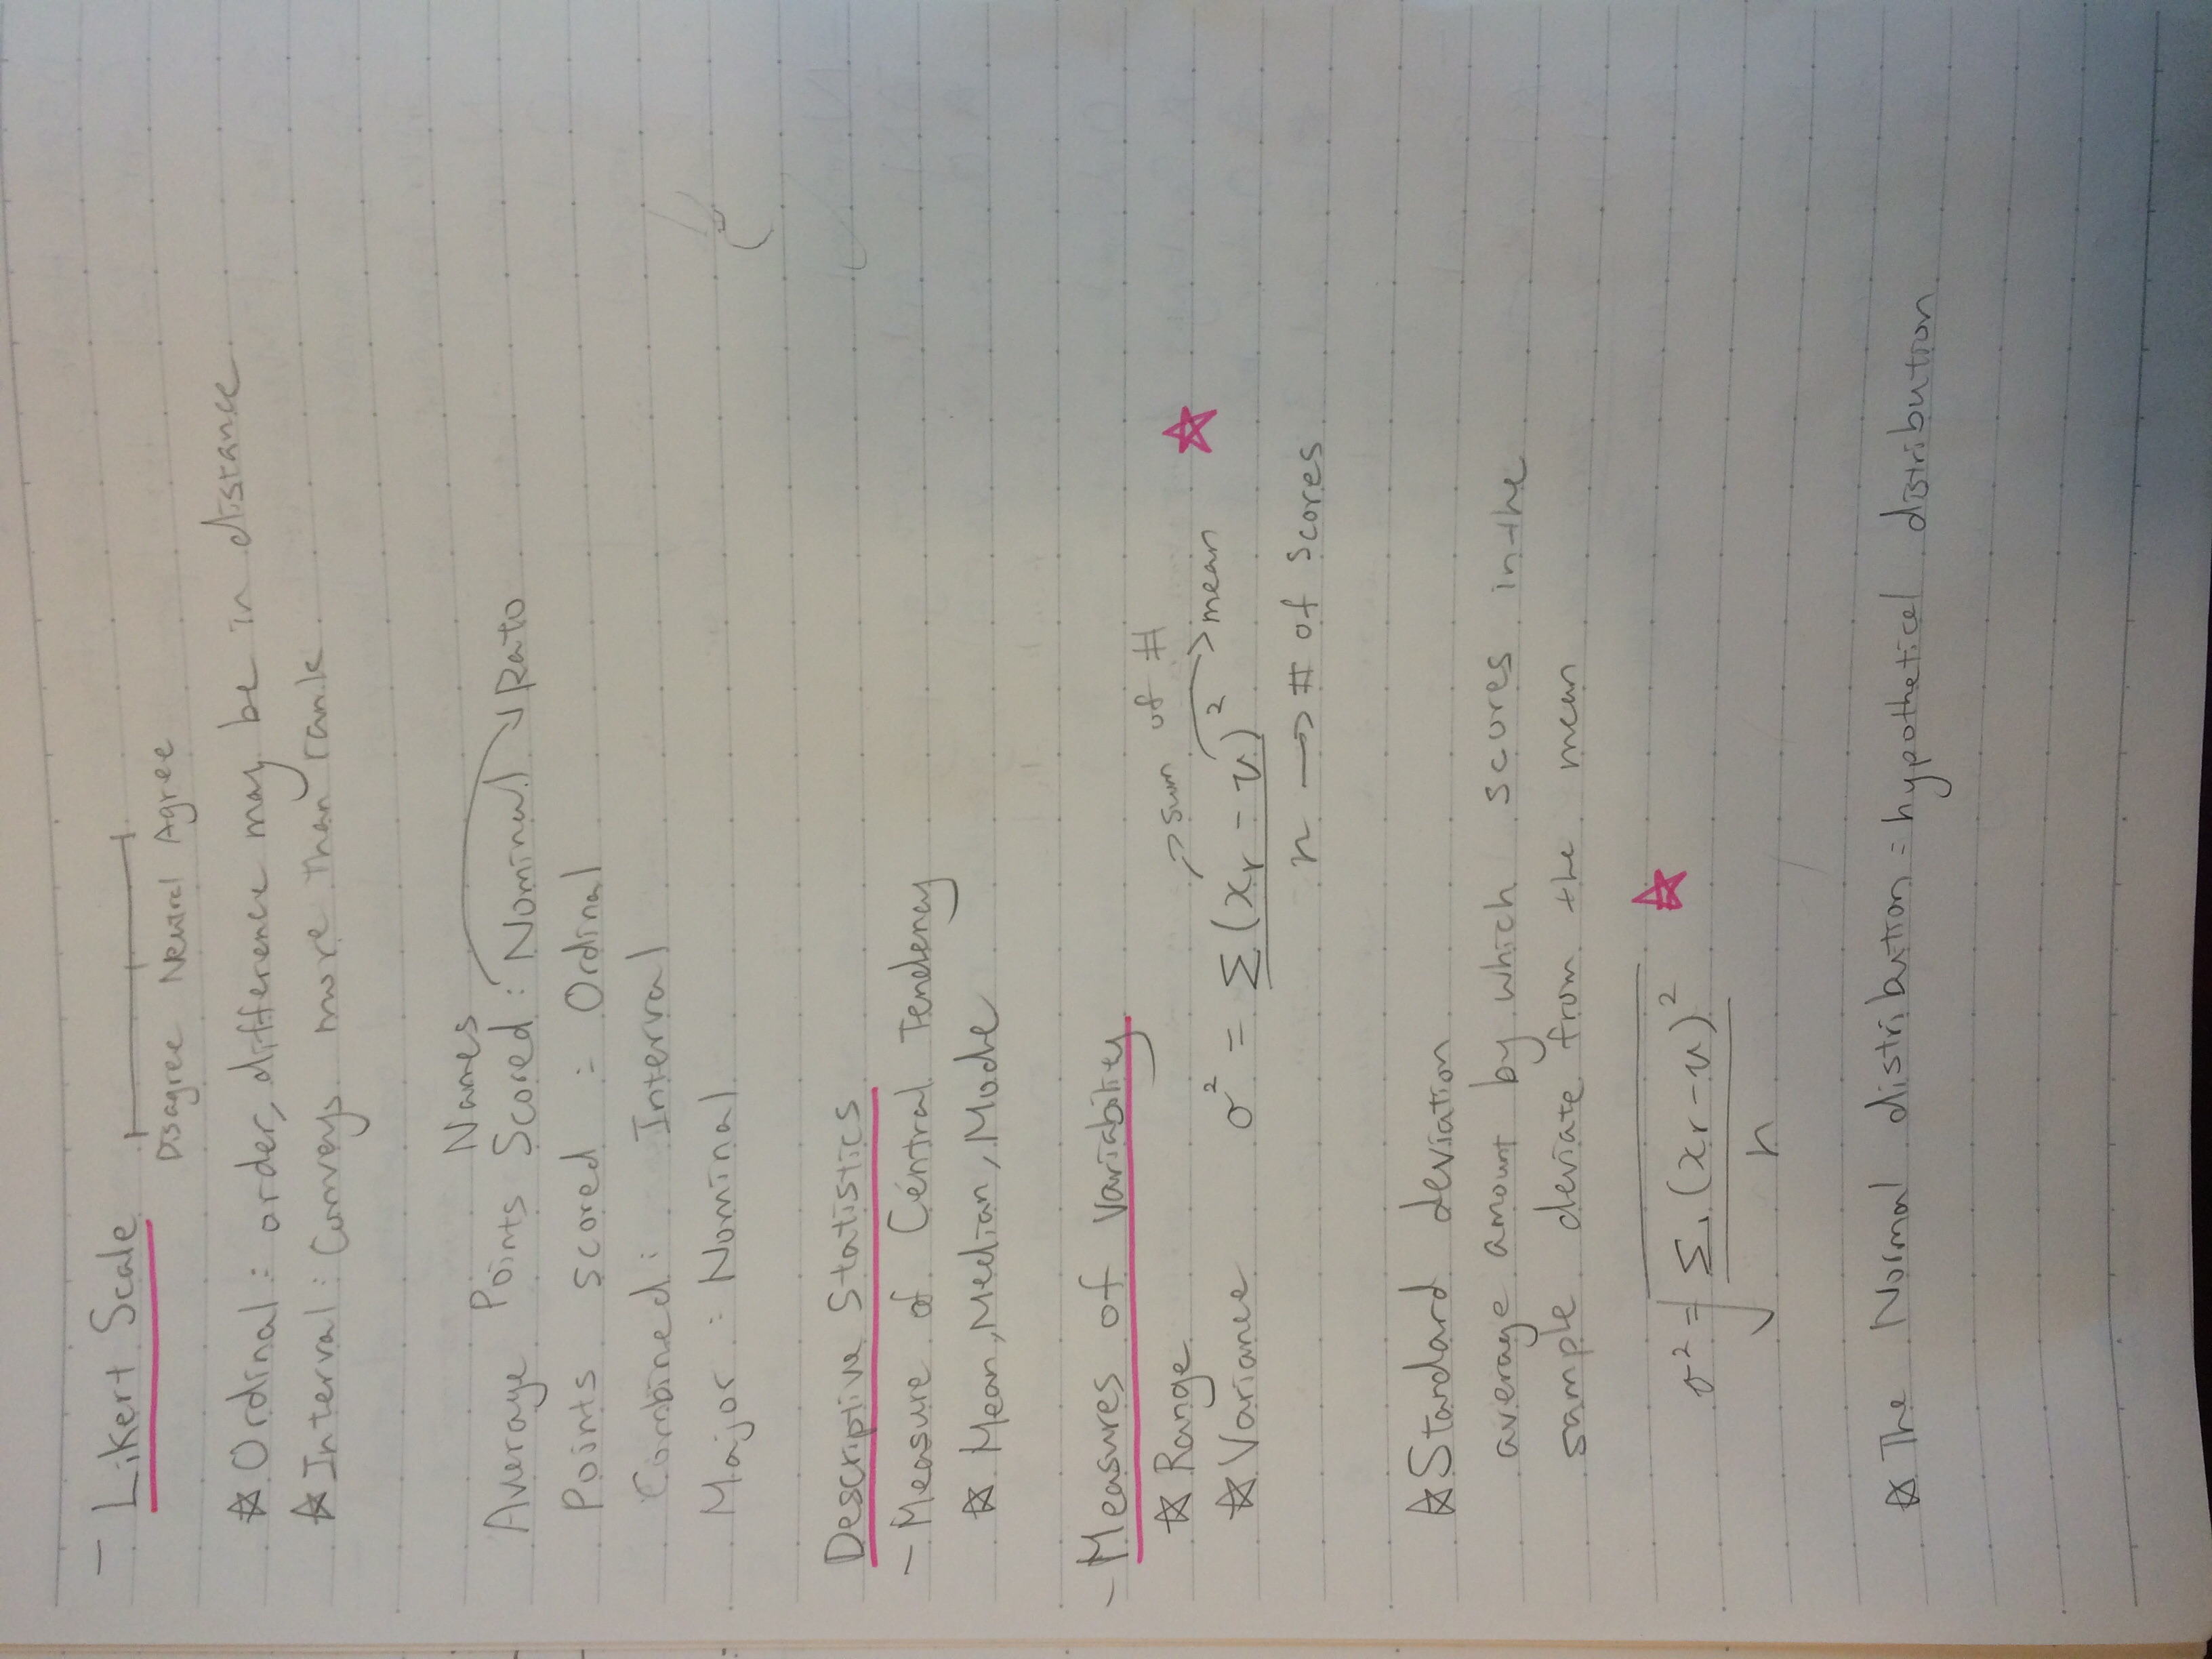 - Likert Scale
Disagree Neutral Agree
☆ Ordinal: order, difference may be in distance
☆ Interval: Conveys more than rank
Names
Average Points Scored: Nominal → Rato
Points scored : Ordinal
Combined: Interval
Major: Nominal
Descriptive Statistics
- Measure of Central Tendency
☆ Mean, Median, Mode
- Measures of Variability
☆ Range → sum of #
☆ Variance σ² = Σ(xr - u)² → mean ☆
n → # of scores
☆ Standard deviation
average amount by which scores in the
sample deviate from the mean
σ² = √Σ(xr - u)² ☆
n
☆ The Normal distribution = hypothetical distribution